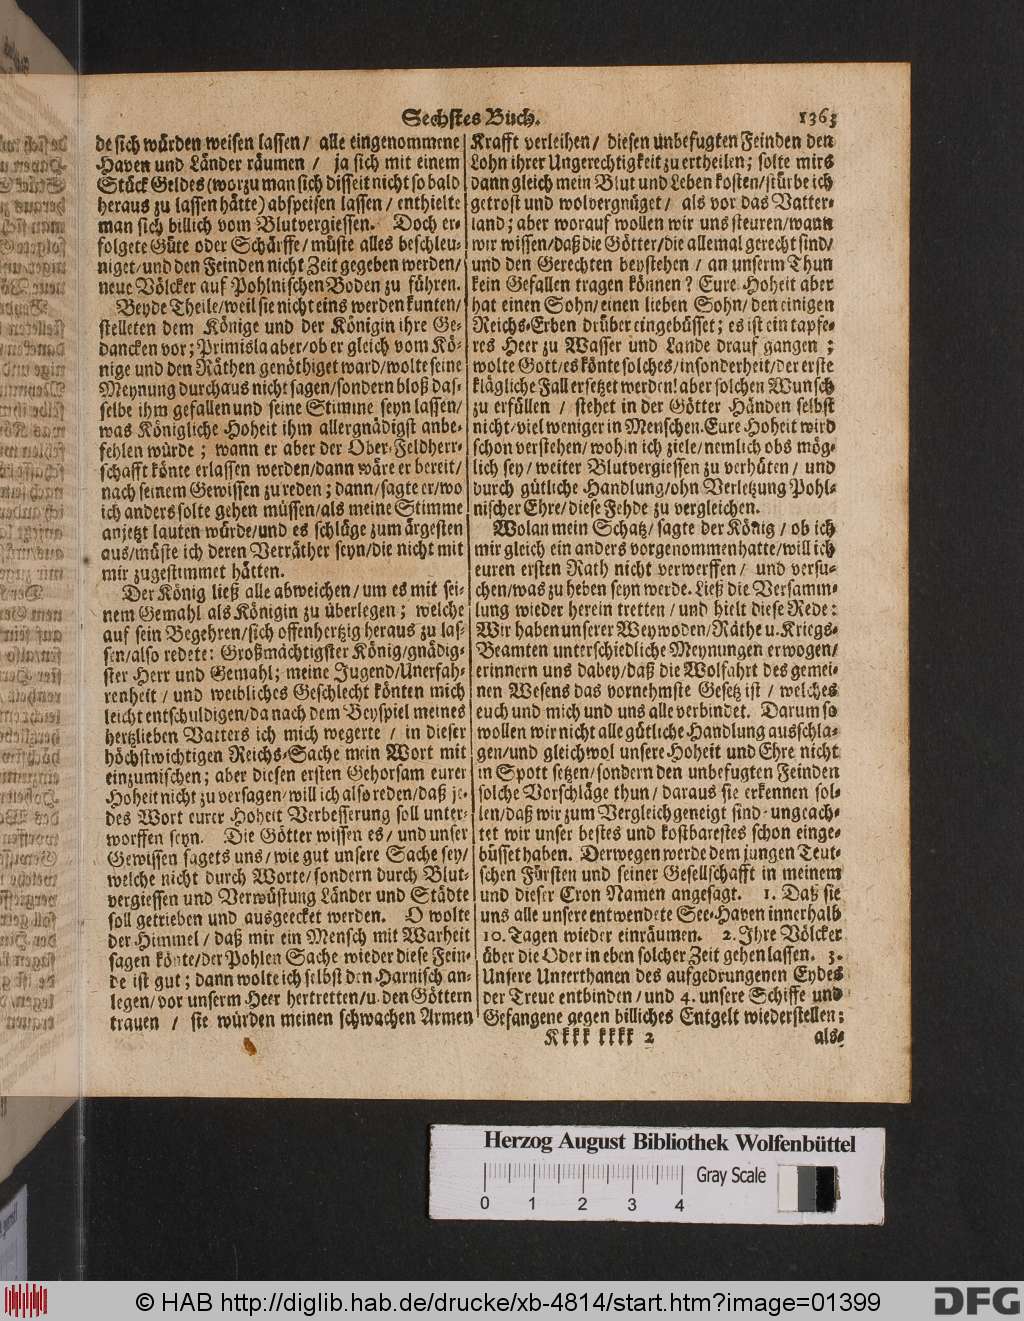 Sechstes Buch. 1363
de sich würden weisen lassen/ alle eingenommene
Haven und Länder räumen / ja sich mit einem
Stück Geldes (worzu man sich disseit nicht so bald
heraus zu lassen hätte) abspeisen lassen / enthielte
man sich billich vom Blutvergiessen. Doch er-
folgete Güte oder Schärffe/ müste alles beschleu-
niget/und den Feinden nicht Zeit gegeben werden/
neue Völcker auf Pohlnischen Boden zu führen.
Beyde Theile/weil sie nicht eins werden kunten/
stelleten dem Könige und der Königin ihre Ge-
dancken vor; Primisla aber/ob er gleich vom Kö-
nige und den Räthen genöthiget ward/wolte seine
Meynung durchaus nicht sagen/sondern bloß das-
selbe ihm gefallen und seine Stimme seyn lassen/
was Königliche Hoheit ihm allergnädigst anbe-
fehlen würde ; wann er aber der Ober-Feldherr-
schafft könte erlassen werden/dann wäre er bereit/
nach seinem Gewissen zu reden ; dann/sagte er/wo
ich anders solte gehen müssen/als meine Stimme
anjetzt lauten würde/und es schlüge zum ärgesten
aus/müste ich deren Verräther seyn/die nicht mit
mir zugestimmet hätten.
Der König ließ alle abweichen/um es mit sei-
nem Gemahl als Königin zu überlegen ; welche
auf sein Begehren/sich offenhertzig heraus zu las-
sen/also redete: Großmächtigster König/gnädig-
ster Herr und Gemahl; meine Jugend/Unerfah-
renheit / und weibliches Geschlecht könten mich
leicht entschuldigen/da nach dem Beyspiel meines
hertzlieben Vatters ich mich wegerte / in dieser
höchstwichtigen Reichs-Sache mein Wort mit
einzumischen; aber diesen ersten Gehorsam eurer
Hoheit nicht zu versagen/will ich also reden/daß je-
des Wort eurer Hoheit Verbesserung soll unter-
worffen seyn. Die Götter wissen es/ und unser
Gewissen sagets uns/wie gut unsere Sache sey/
welche nicht durch Worte/sondern durch Blut-
vergiessen und Verwüstung Länder und Städte
soll getrieben und ausgeecket werden. O wolte
der Himmel / daß mir ein Mensch mit Warheit
sagen könte/der Pohlen Sache wieder diese Fein-
de ist gut ; dann wolte ich selbst den Harnisch an-
legen/vor unserm Heer hertretten/u. den Göttern
trauen / sie würden meinen schwachen Armen
Krafft verleihen / diesen unbefugten Feinden den
Lohn ihrer Ungerechtigkeit zu ertheilen; solte mirs
dann gleich mein Blut und Leben kosten/stürbe ich
getrost und wolvergnüget / als vor das Vatter-
land ; aber worauf wollen wir uns steuren/wann
wir wissen/daß die Götter/die allemal gerecht sind/
und den Gerechten beystehen / an unserm Thun
kein Gefallen tragen können ? Eure Hoheit aber
hat einen Sohn/einen lieben Sohn/den einigen
Reichs-Erben drüber eingebüsset; es ist ein tapfe-
res Heer zu Wasser und Lande drauf gangen ;
wolte Gott/es könte solches/insonderheit/der erste
klägliche Fall ersetzet werden! aber solchen Wunsch
zu erfüllen / stehet in der Götter Händen selbst
nicht/viel weniger in Menschen. Eure Hoheit wird
schon verstehen/wohin ich ziele/nemlich obs mög-
lich sey/ weiter Blutvergiessen zu verhüten / und
durch gütliche Handlung/ohn Verletzung Pohl-
nischer Ehre/diese Fehde zu vergleichen.
Wolan mein Schatz/ sagte der König / ob ich
mir gleich ein anders vorgenommen hatte/will ich
euren ersten Rath nicht verwerffen / und versu-
chen/was zu heben seyn werde. Ließ die Versamm-
lung wieder herein tretten / und hielt diese Rede:
Wir haben unserer Weywoden/Räthe u. Kriegs-
Beamten unterschiedliche Meynungen erwogen/
erinnern uns dabey/daß die Wolfahrt des gemei-
nen Wesens das vornehmste Gesetz ist / welches
euch und mich und uns alle verbindet. Darum so
wollen wir nicht alle gütliche Handlung ausschla-
gen/und gleichwol unsere Hoheit und Ehre nicht
in Spott setzen/sondern den unbefugten Feinden
solche Vorschläge thun / daraus sie erkennen sol-
len/daß wir zum Vergleich geneigt sind- ungeach-
tet wir unser bestes und kostbarestes schon einge-
büsset haben. Derwegen werde dem jungen Teut-
schen Fürsten und seiner Gesellschafft in meinem
und dieser Cron Namen angesagt. 1. Daß sie
uns alle unsere entwendete See-Haven innerhalb
10. Tagen wieder einräumen. 2. Ihre Völcker
über die Oder in eben solcher Zeit gehen lassen. 3.
Unsere Unterthanen des aufgedrungenen Eydes
der Treue entbinden / und 4. unsere Schiffe und
Gefangene gegen billiches Entgelt wiederstellen;
Kkkk kkkk 2 als-
Herzog August Bibliothek Wolfenbüttel
Gray Scale
0 1 2 3 4
© HAB http://diglib.hab.de/drucke/xb-4814/start.htm?image=01399
DFG